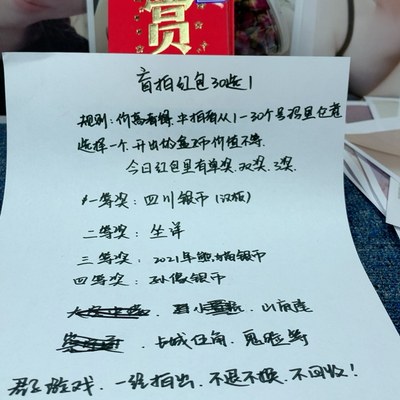 赏
盲拍红包30选1
规则:价高者得 中拍者从1-30个号码里任意
选择一个.开出的金币价值不等
今日红包里有单奖.双奖.3奖.
一等奖:四川银币(汉版)
二等奖:坐洋
三等奖:2021年熊猫银币
四等奖:孙像银币
长城伍角.鬼脸等
群主游戏.一经拍出.不退不换.不回收!